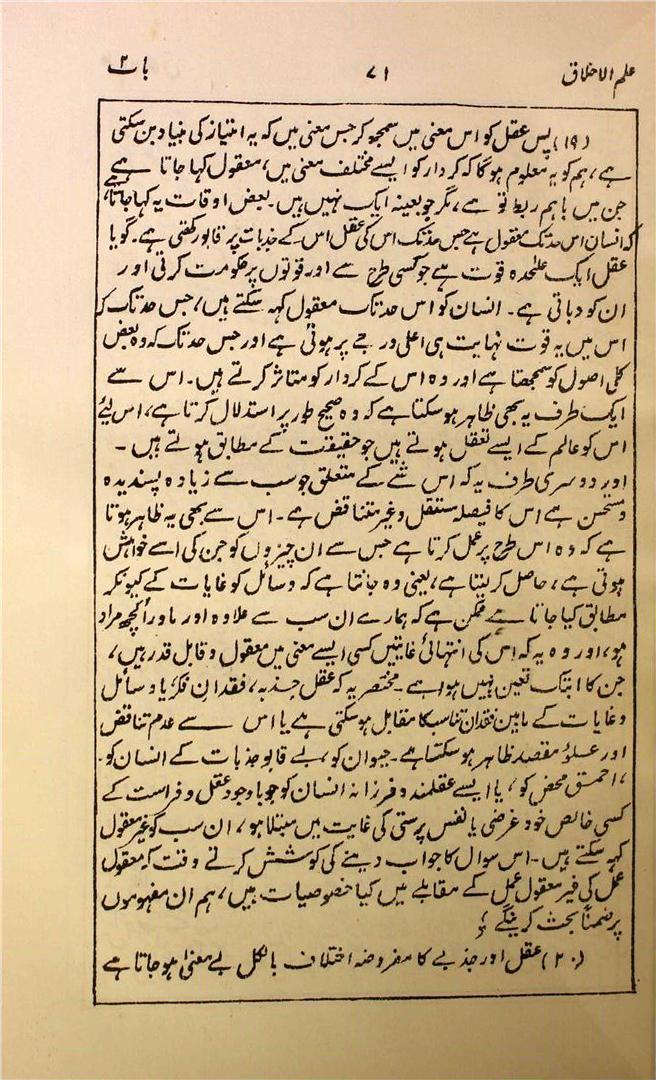 علم الاخلاق ۷۱ باب ۲
(۱۹) پس عقل کو اس معنی میں سمجھ کر جس معنی میں کہ یہ امتیاز کی بنیاد بن سکتی
ہے، ہم کو یہ معلوم ہوگا کہ کردار کو ایسے مختلف معنی میں، معقول کہا جاتا ہے
جن میں باہم ربط تو ہے، مگر جو بعینہ ایک نہیں ہیں۔ بعض اوقات یہ کہا جاتا،
کہ انسان اس حد تک معقول ہے جس حد تک اس کی عقل اس کے جذبات پر قابو رکھتی ہے۔ گویا
عقل ایک علٰحدہ قوت ہے جو کسی طرح سے اور قوتوں پر حکومت کرتی اور
ان کو دباتی ہے۔ انسان کو اس حد تک معقول کہہ سکتے ہیں، جس حد تک کہ
اس میں یہ قوت نہایت ہی اعلیٰ درجے پر ہوتی ہے اور جس حد تک کہ وہ بعض
کلی اصول کو سمجھتا ہے اور وہ اس کے کردار کو متاثر کرتے ہیں۔ اس سے
ایک طرف یہ بھی ظاہر ہو سکتا ہے کہ وہ صحیح طور پر استدلال کرتا ہے، اس لیئے
اس کو عالم کے ایسے تعقل ہوتے ہیں جو حقیقت کے مطابق ہوتے ہیں۔
اور دوسری طرف یہ کہ اس شے کے متعلق جو سب سے زیادہ پسندیدہ
و مستحسن ہے اس کا فیصلہ مستقل و غیر متناقض ہے۔ اس سے بھی یہ ظاہر ہوتا
ہے کہ وہ اس طرح پر عمل کرتا ہے جس سے ان چیزوں کو جن کی اسے خواہش
ہوتی ہے، حاصل کر لیتا ہے، یعنی وہ جانتا ہے کہ وسائل کو غایات کے کیونکر
مطابق کیا جاتا ہے ممکن ہے کہ ہمارے ان سب سے علاوہ اور ماوراً کچھ مراد
ہو، اور وہ یہ کہ اس کی انتہائی غایتیں کسی ایسے معنی میں معقول و قابل قدر ہیں،
جن کا ابتک تعین نہیں ہوا ہے۔ مختصر یہ کہ عقل جذبہ، فقدان فکر یا وسائل
و غایات کے مابین فقدان تناسب کا مقابل ہو سکتی ہے یا اس سے عدم تناقض
اور علو مقصد ظاہر ہو سکتا ہے۔ حیوان کو، بے قابو جذبات کے انسان کو۔
، احمق محض کو، یا ایسے عقلمند و فرزانہ انسان کو جو باوجود عقل و فراست کے
کسی خالص خود غرضی یا نفس پرستی کی غایت میں مبتلا ہو، ان سب کو غیر معقول
کہہ سکتے ہیں۔ اس سوال کا جواب دینے کی کوشش کرتے وقت کہ معقول
عمل کی غیر معقول عمل کے مقابلے میں کیا خصوصیات ہیں، ہم ان مفہوموں
پر ضمناً بحث کرینگے
(۲۰) عقل اور جذبے کا مفروضہ اختلاف بالکل بے معنی ہو جاتا ہے